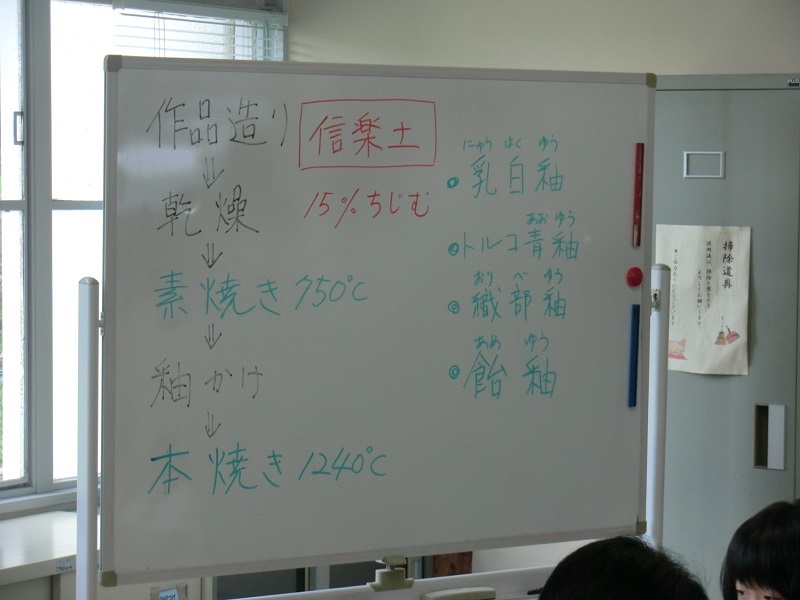 作品造り
信楽土
↓
乾燥
15%ちじむ
↓
素焼き750℃
↓
釉かけ
↓
本焼き1240℃
にゅう はく ゆう
乳白釉
あお ゆう
トルコ青釉
おり べ ゆう
織部釉
あめ ゆう
飴釉
掃除道具